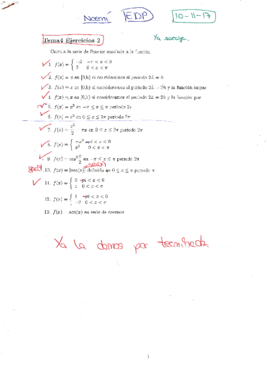 Noemí EDP 10-11-17
Tema 4 Ejercicios 2
Ya corregi
la serie de Fourier asociada a la función.
1. f(x) = { -a -π < x < 0
0 < x < π
2. f(x) = x en [0,h] si consideramos el periodo 2L = h
3. f(x) = x en [0,h] si consideramos el periodo 2L = 2h y la función impar
4. f(x) = x en [0,h] si consideramos el periodo 2L = 2h y la función par
5. f(x) = x² en -π ≤ x ≤ π periodo 2π
6. f(x) = x² en 0 ≤ x ≤ 2π periodo 2π
7. f(x) = x²/2 en 0 ≤ x ≤ 2π periodo 2π
8. f(x) = { -x² -π < x < 0
x² 0 < x < π
9. f(x) = en -π < x < π periodo 2π
10. f(x) = definida en 0 ≤ x ≤ π periodo π
11. f(x) = { 0 -pi < x < 0
x 0 < x < π
12. f(x) = { -pi < x < 0
0 < x < π
13. f(x) en serie de cosenos
Ya la damos por terminada
1